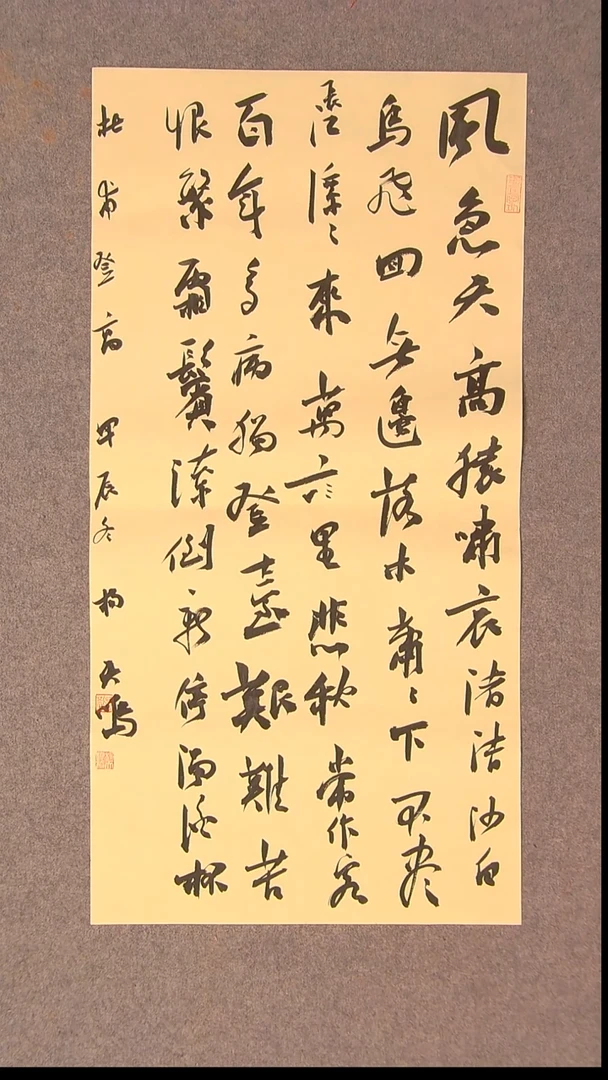 風急天高猿嘯哀渚清沙白
鳥飛回無邊落木蕭〻下不盡
長江滚〻來萬里悲秋常作客
百年多病獨登臺艱難苦
恨繁霜鬢潦倒新停濁酒杯
杜甫登高 甲辰冬 楊鳴